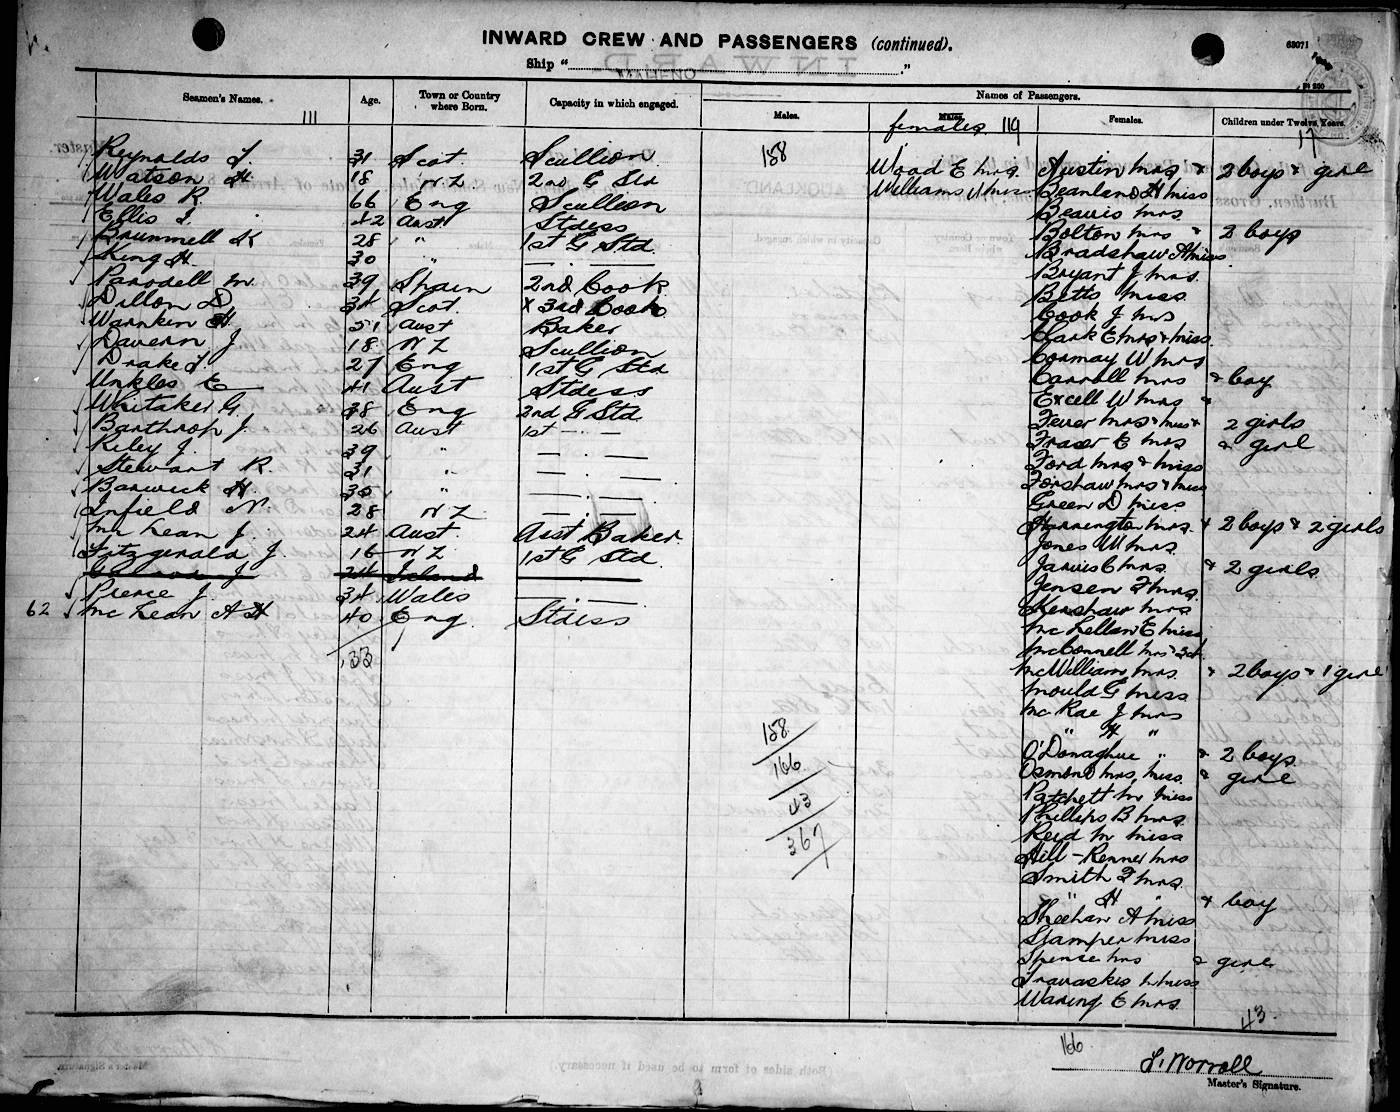 INWARD CREW AND PASSENGERS (continued).
63071
Ship "MAHENO"
Seamen's Names. Age. Town or Country where Born. Capacity in which engaged. Names of Passengers.
Males. Males. females Females. Children under Twelve Years.
111 119 17
158
Reynolds T. 31 Scot. Scullion
Watson H 18 N Z 2nd G Std
Wales R. 66 Eng Scullion
Ellis I. 42 Aust Stdess
Brummell K 28 " 1st G Std.
King H. 30 " — . —
Parodell M. 39 Spain 2nd Cook
Dillon D 34 Scot. x 3rd Cook
Warnken H. 51 Aust Baker
Davern J 18 N Z Scullion
Drake T. 27 Eng 1st G Std
Unkles E 41 Aust Stdess
Whitaker G. 38 Eng 2nd G Std
Barthrop J. 26 Aust 1st — . —
Riley J. 39 " — . —
Stewart R. 31 " — . —
Barwick H. 35 " — . —
Infield N. 28 N Z — . —
McLean J. 24 Aust. Asst Baker
Fitzgerald J. 16 N Z 1st G Std
J 24 Ireland
Pierce J. 34 Wales — . —
62 McLean A H 40 Eng. Stdess
33
Wood E mrs.
Williams U miss
Austin mrs & 2 boys & girl
Beanland H miss
Beavis mrs.
Bolton mrs & 2 boys
Bradshaw A miss
Bryant J mrs.
Betts miss
Cook J mrs
Clark E mrs & miss
Cormay W mrs
Carroll mrs & boy
Excell W mrs &
Fewer mrs & miss & 2 girls
Fraser E mrs & girl
Ford mrs & miss
Forshaw mrs & miss
Green D miss
Harrington mrs. & 2 boys & 2 girls
Jones W mrs.
Jarvis C mrs. & 2 girls
Jensen F mrs.
Kershaw mrs
McLellan E miss
McConnell mrs &
McWilliam mrs. & 2 boys & 1 girl
Mould G miss
McRae J mrs
" H "
O'Donaghue " & 2 boys
Osmond mrs, miss. & girl
Patchett M miss
Phillips B mrs.
Reid M miss
Hill - Renner mrs
Smith F mrs.
" H " & boy
Sheehan A miss
Stamper miss
Spense mrs & girl
Travaskis miss
Waring E mrs.
158
166
43
367
43
166
I. Worrall
Master's Signature.